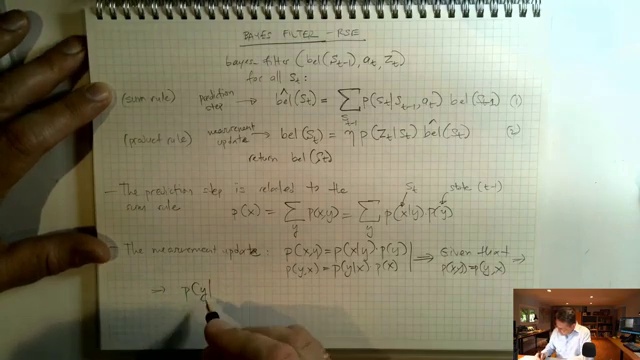 BAYES FILTER - RSE
bayes filter (bel(S_{t-1}), a_t, Z_t)
for all S_t:
(sum rule) prediction step → \hat{bel}(S_t) = \sum_{S_{t-1}} p(S_t | S_{t-1}, a_t) bel(S_{t-1}) (1)
(product rule) measurement update → bel(S_t) = η p(Z_t | S_t) \hat{bel}(S_t) (2)
return bel(S_t)
- The prediction step is related to the
sum rule p(x) = \sum_y p(x,y) = \sum_y p(x|y) p(y)
S_t state (t-1)
- The measurement update: p(x,y) = p(x|y) · p(y)
p(y,x) = p(y|x) p(x)
⟹ Given that ⟹
p(x,y) = p(y,x)
⟹ p(y|